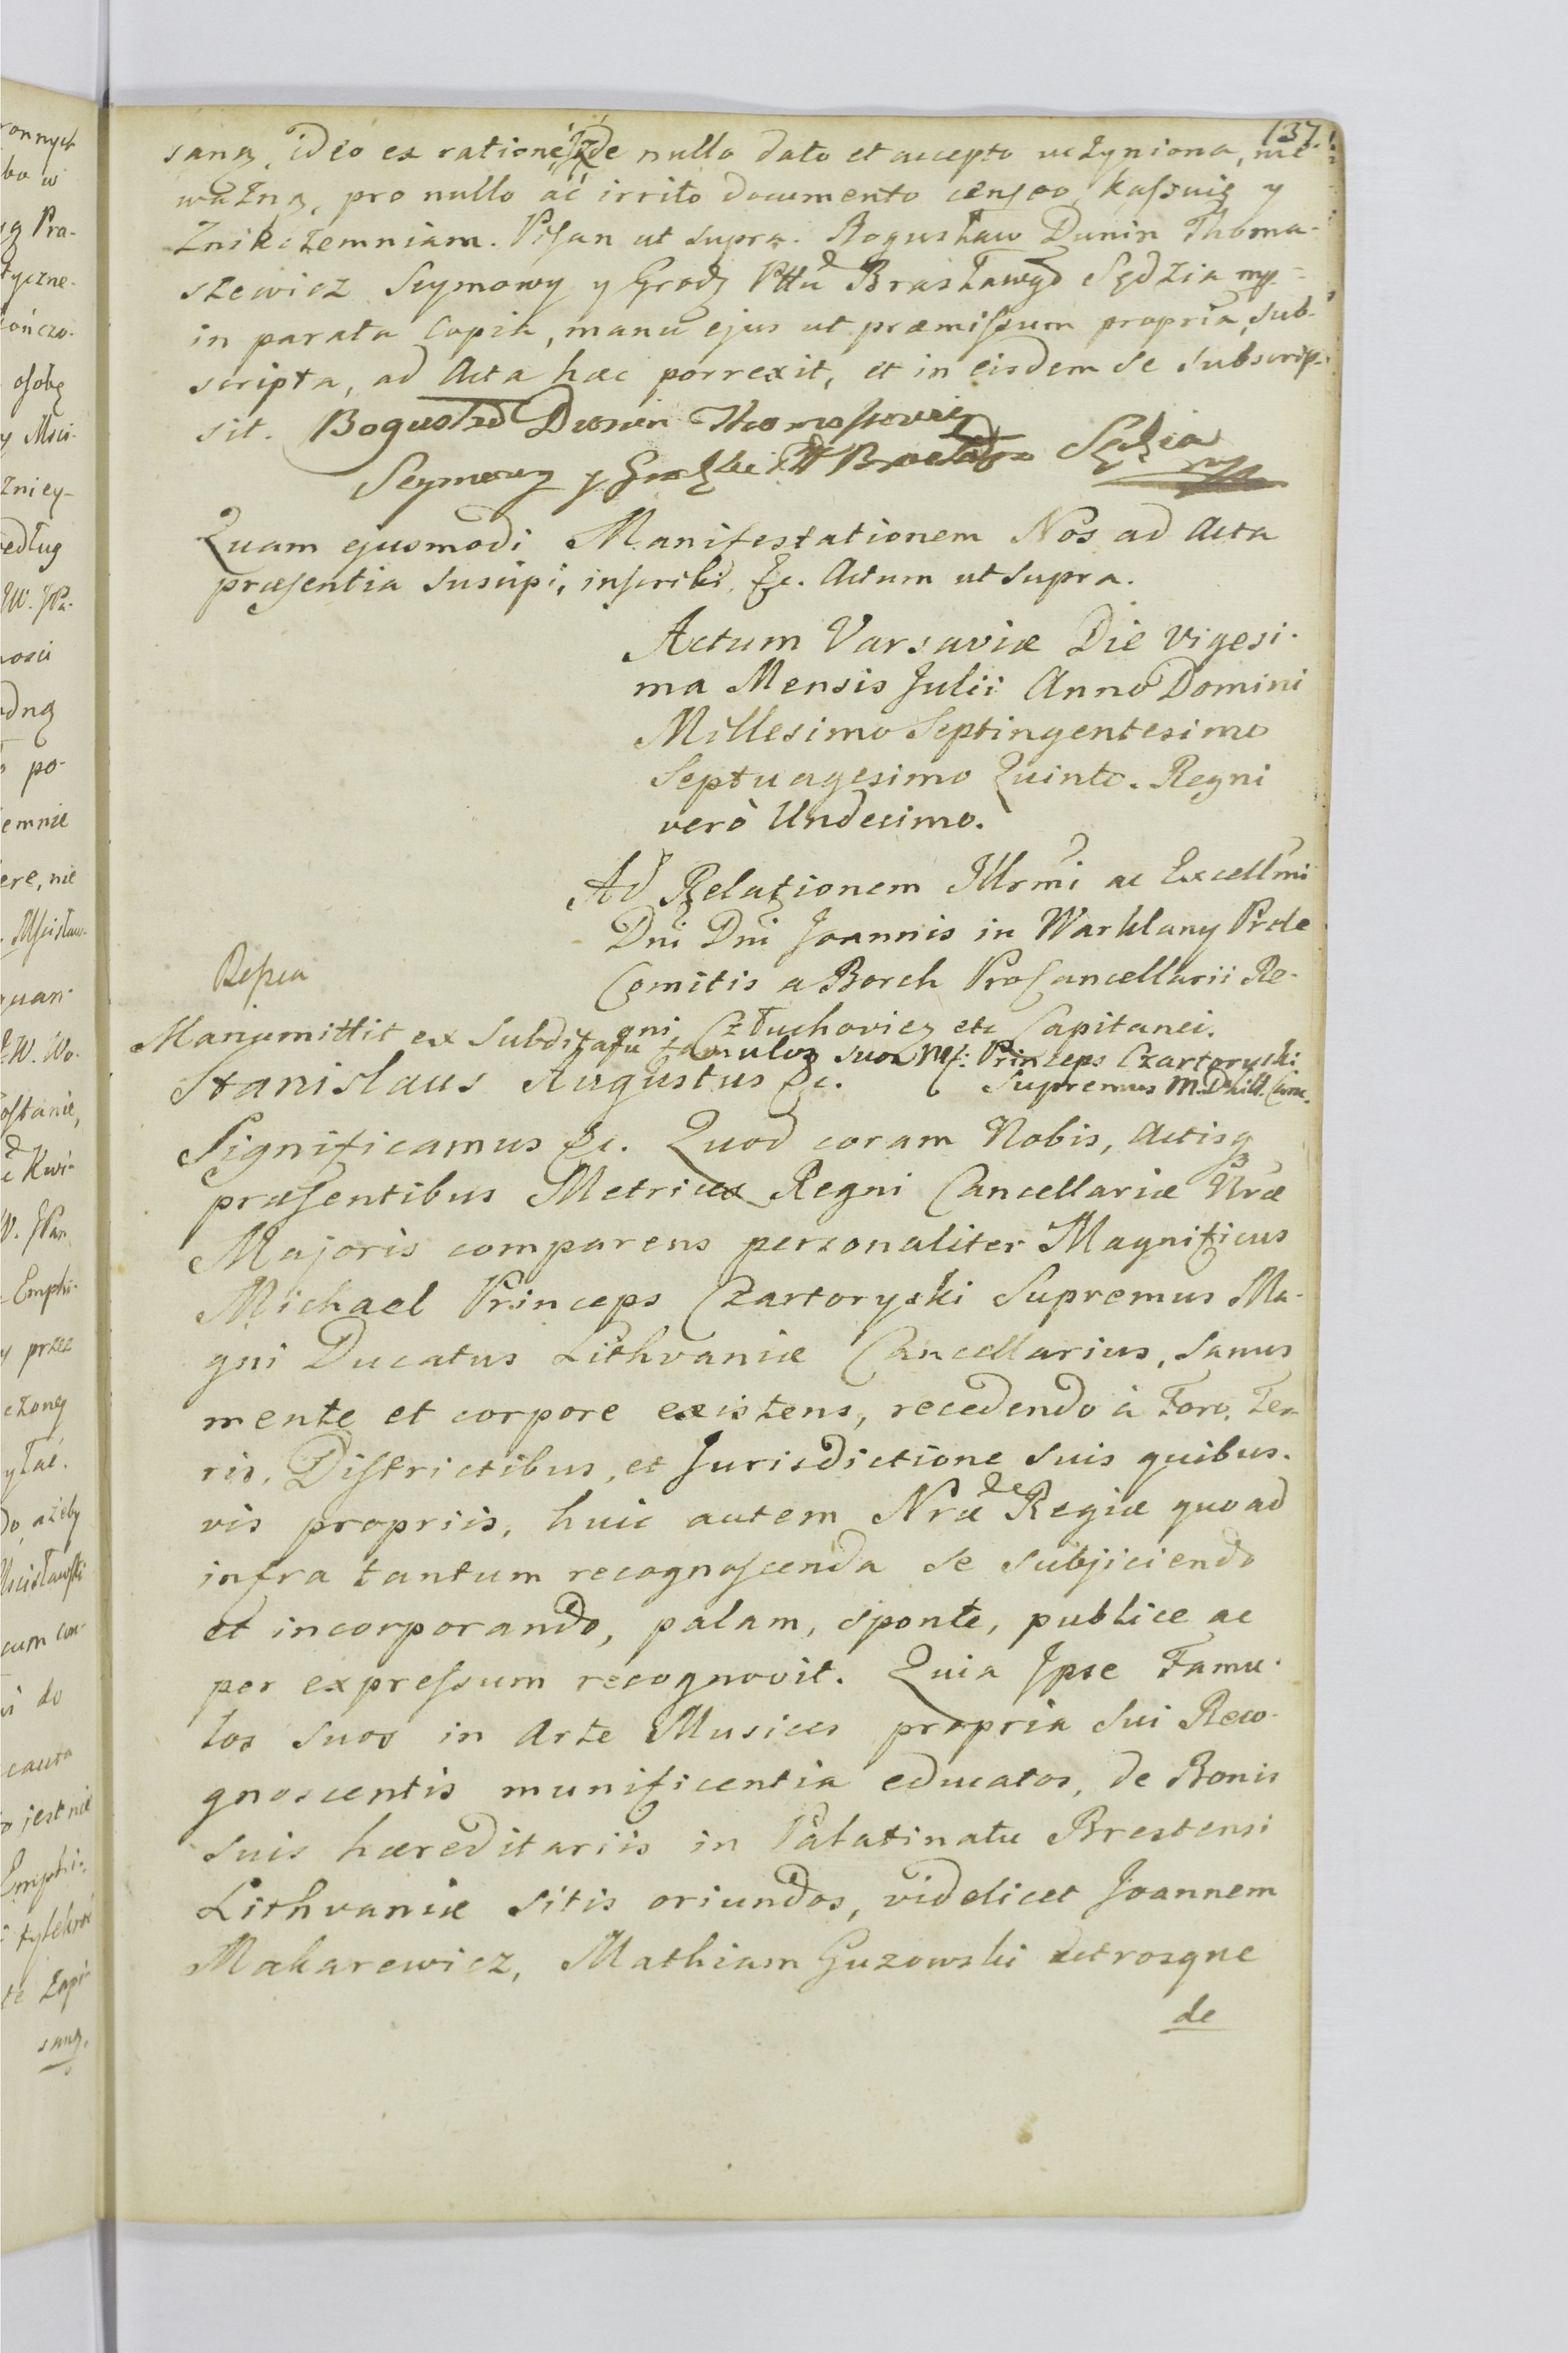 137.
saną, ideo ex ratione de nullo dato et accepto uczyniona, nie
ważną, pro nullo ac irrito documento censeo, kassuię y
Znikczemniam. Pisan ut supra. Bogusław Dunin Thoma-
szewicz Seymowy y Grodz Pttu Brasławgo Sędzia mp
in parata Copia, manu ejus ut præmissum propria, sub-
scripta, ad Acta hæc porrexit, et in eisdem se subscrip-
sit. Bogusław Dunin Thomaszewicz
Seymowy y Grodzki Ptt Brasław Sędzia mp
Quam ejusmodi Manifestationem Nos ad Acta
præsentia suscipi, inscribi &c. Actum ut supra.
Actum Varsaviæ Die Vigesi-
ma Mensis Julii Anno Domini
Millesimo Septingentesimo
Septuagesimo Quinto. Regni
verò Undecimo.
Ad Relationem Illrmi ac Excellmi
Dni Dni Joannis in Warklany Prele
Comitis a Borch ProCancellarii Re-
gni Człuchoviey etc Capitanei.
Manumittit ex Subditatu famulos suos M: Princeps Czartoryski
Supremus M. D. Litt. Canc.
Stanislaus Augustus &c.
Significamus &c. Quod coram Nobis, Actisq
præsentibus Metrices Regni Cancellariæ Nræ
Majoris comparens personaliter Magnificus
Michael Princeps Czartoryski Supremus Ma-
gni Ducatus Lithvaniæ Cancellarius, sanus
mente et corpore existens, recedendo à Foro, Ter-
ris, Districtibus, et Jurisdictione suis quibus-
vis propriis, huic autem Nræ Regiæ quoad
infra tantum recognoscenda se subjiciendo
et incorporando, palam, sponte, publice ac
per expressum recognovit. Quia Ipse Famu-
los suos in Arte Musices propria sui Reco-
gnoscentis munificentia educatos, de Bonis
suis hæreditariis in Palatinatu Brestensi
Lithvaniæ sitis oriundos, videlicet Joannem
Makarewicz, Mathiam Guzowski utrosque
de